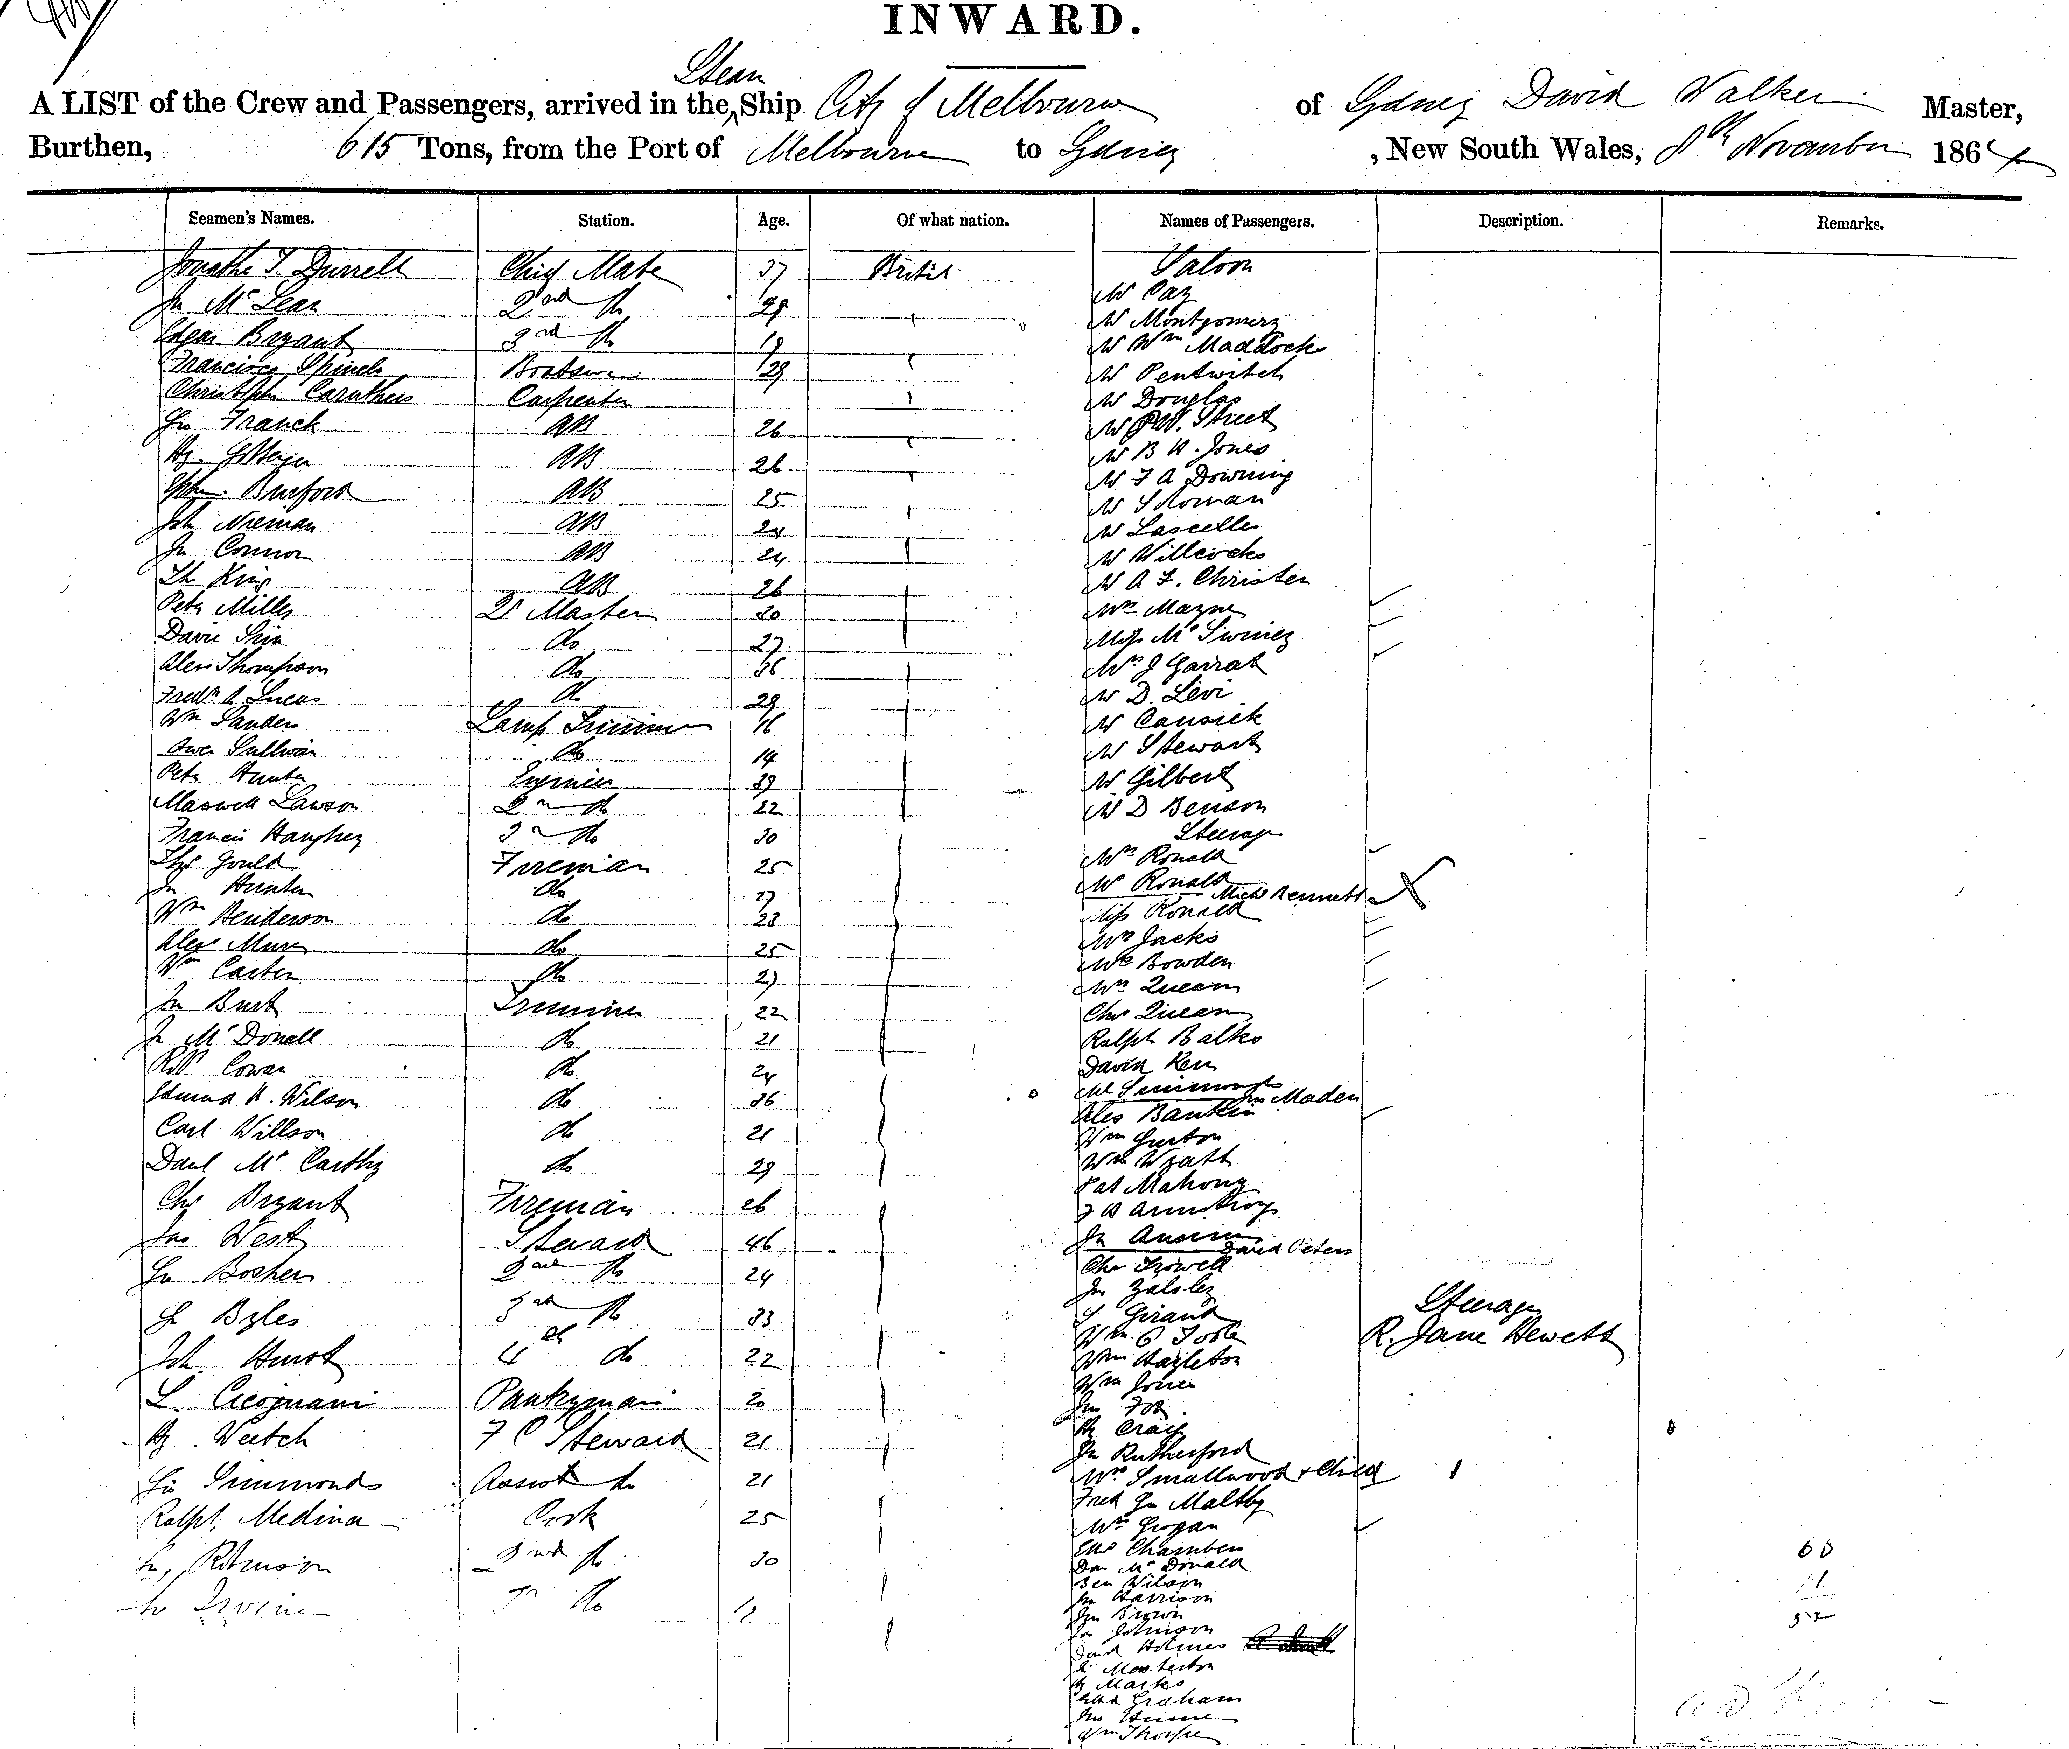 INWARD.
Steam
A LIST of the Crew and Passengers, arrived in the Ship City of Melbourne of Sydney David Walker Master,
Burthen, 615 Tons, from the Port of Melbourne to Sydney, New South Wales, 8th November 1864
Seamen's Names. Station. Age. Of what nation. Names of Passengers. Description. Remarks.
Chief Mate 37 British Saloon
Jn McLean 2nd Do 29 Mr Cay
Edgar Bryant 3rd Do 19 Mr Montgomery
Boatswain 29 Mr Wm Maddock
Christopher Caruthers Carpenter Mr Pentwitch
Jn Franck AB 26 Mr Douglas
AB 26 Mr Street
Burford AB 25 Mr B H. Jones
AB 24 Mr F A Downing
Jn Connor AB 24 Mr S Roman
Th King AB 26 Mr Lascelles
Peter Mills Qr Master 20 Mr Willcocks
do 27 Mr A F. Christen
Alex Thompson do 36 Mrs Mayne
Fredk A Lucas do 29 Miss McSwiney
Wm Sanders Lamp Trimmer 16 Mrs J Garrat
Owen Sullivan do 14 Mr D. Levi
Peter Hunter Engineer 39 Mr Cansick
Maxwell Lawson 2nd do 22 Mr Stewart
Francis Haughey 3rd do 30 Mr Gilbert
Gould Fireman 25 Mr D Benson
Jn Hunter do 27 Steerage
Wm Henderson do 23 Mrs Ronald
Alex Muir do 25 Mr Ronald
Mich Bennett
Wm Carter do 27 Miss Ronald
Jn Burt Trimmer 22 Mrs Jacks
Jn McDonell do 21 Mrs Bowden
Robt Cowan do 24 Mrs Quean
Edmund H. Wilson do 36 Chs Quean
Carl Willson do 21 Ralph Balko
Danl McCarthy do 29 David Kerr
Chs Bryant Fireman 26 Jn Maden
Jas West Steward 46 Alex Bankin
Jn Bosher 2nd do 24 Wm Gurton
Byles 3rd do 33 Wm Wyatt
Hurst 4th do 22 Pat Mahony
L. Pantryman 20 Armstrong
Hy. Veitch F C Steward 21 David Peters
Jn Simmonds Assist do 21 Chs Trowell
Ralph Medina Cook 25
Jn Robinson 2nd do 30 Girand
Jn Irvine do Wm Hazleton
Steerage
R. Jane Hewett
Wm Jones
Jn Fox
Hy Craig
Jn Rutherford
Mrs Smallwood & Child
Fred Jn Maltby
Mrs Grogan
Chambers
Don McDonald
Ben Wilson
Jn Harrison
Jn Brown
Jn Johnson
David Holmes
Masterton
Hy Marks
Graham
Jas Hume
Wm Thorpe